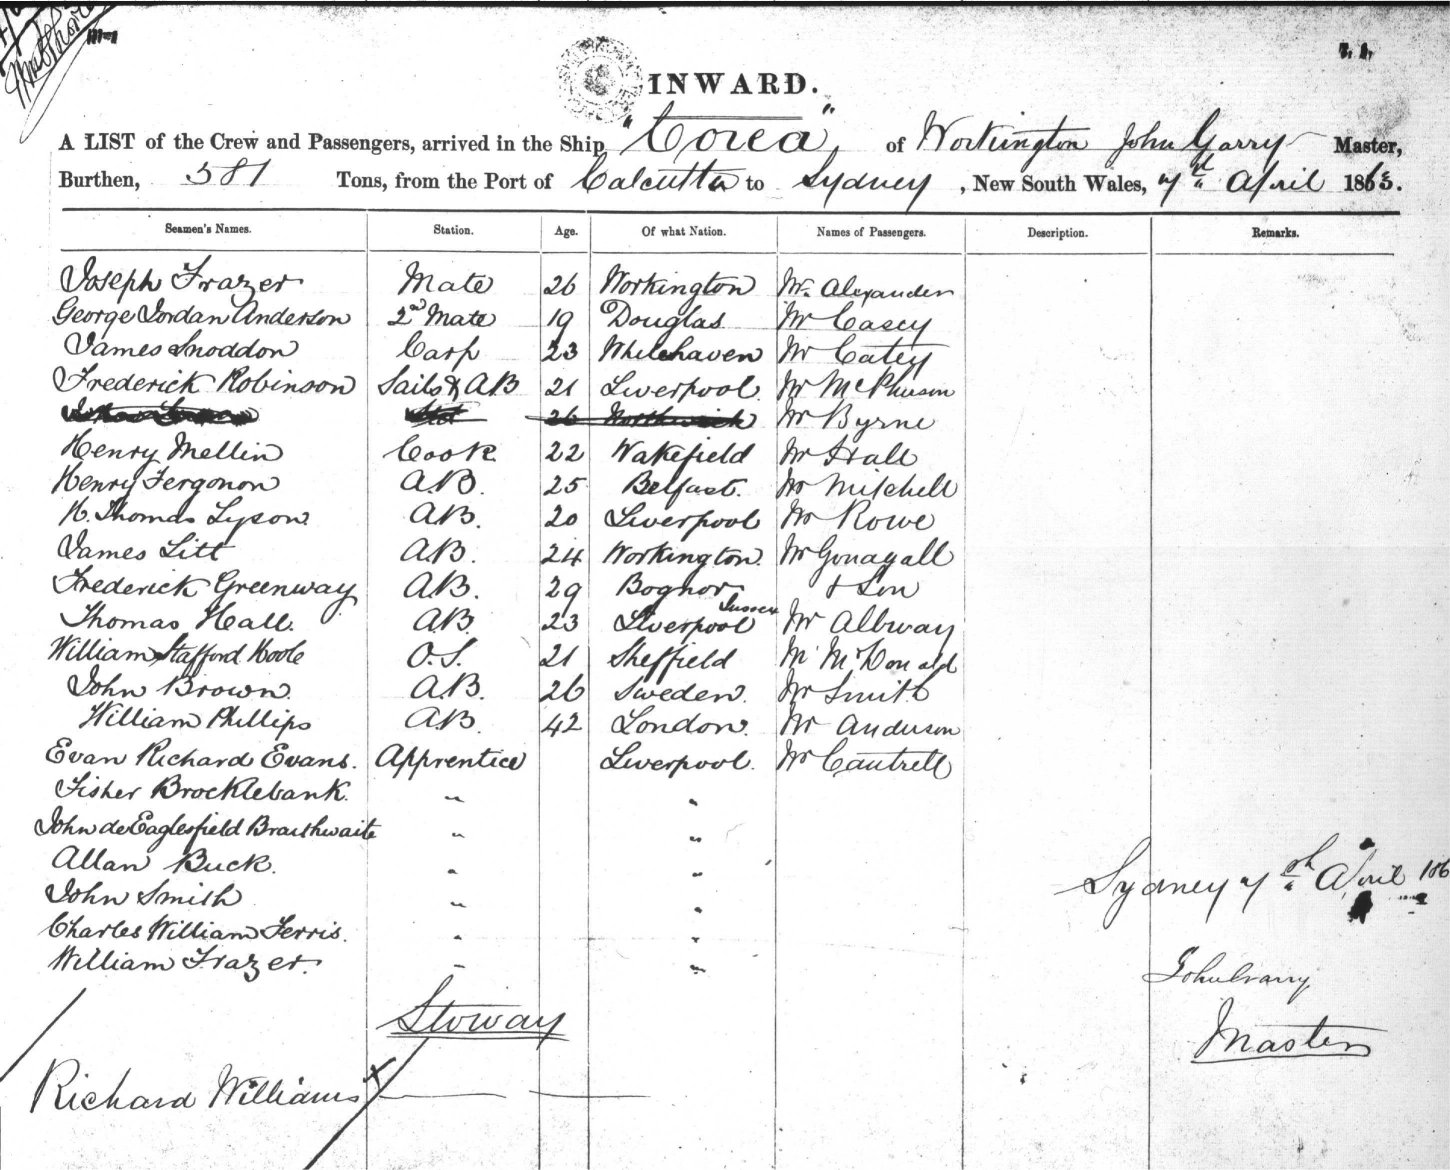 INWARD.
A LIST of the Crew and Passengers, arrived in the Ship "Corea" of Workington John Garry Master,
Burthen, 581 Tons, from the Port of Calcutta to Sydney, New South Wales, 7th April 1863.
Seamen's Names. Station. Age. Of what Nation. Names of Passengers. Description. Remarks.
Joseph Frazer Mate 26 Workington Mr. Alexander
George Jordan Anderson 2nd Mate 19 Douglas Mr Casey
James Snoddon Carp 23 Whitehaven Mr Catey
Frederick Robinson Sails & AB 21 Liverpool Mr McPherson
26 Northwich Mr Byrne
Henry Mellin Cook 22 Wakefield Mr Hall
Henry Fergonon A.B. 25 Belfast. Mr Mitchell
R. Thomas Lyson A.B. 20 Liverpool Mr Rowe
James Litt A.B. 24 Workington. Mr Gonagall
Frederick Greenway A.B. 29 Bognor & Son
Sussex
Thomas Hall. A.B. 23 Liverpool Mr Albway
William Stafford Hoole O.S. 21 Sheffield Mr McDonald
John Brown. A.B. 26 Sweden. Mr Smith
William Phillips A.B. 42 London. Mr Anderson
Evan Richard Evans. Apprentice Liverpool. Mr Cantrell
Fisher Brocklebank. " "
John de Eaglesfield Braithwaite " "
Allan Buck. " "
John Smith " "
Sydney 7th April 186
Charles William Ferris. " "
William Frazer. " "
John Garry
Stoway
Master
Richard Williams